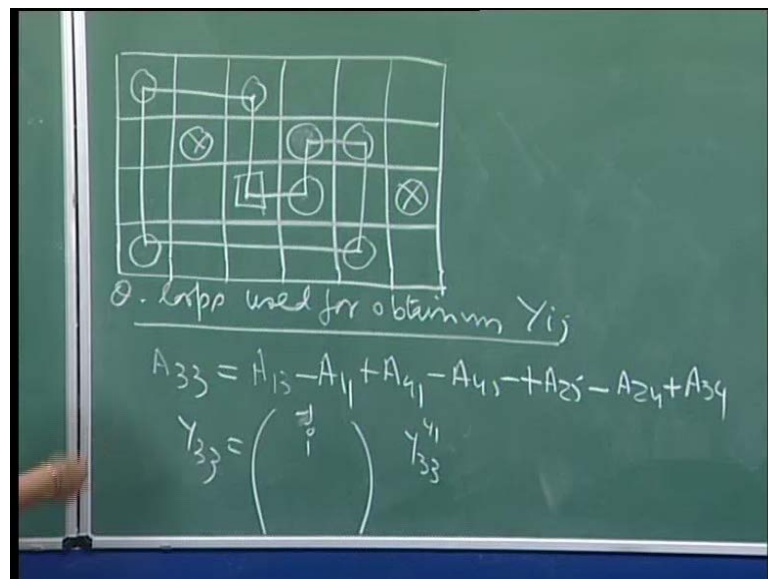 θ-loops used for obtaining Yij
A33 = A13 - A11 + A41 - A45 + A25 - A24 + A34
Y33 = ( -1 0 1 ) Y33^41